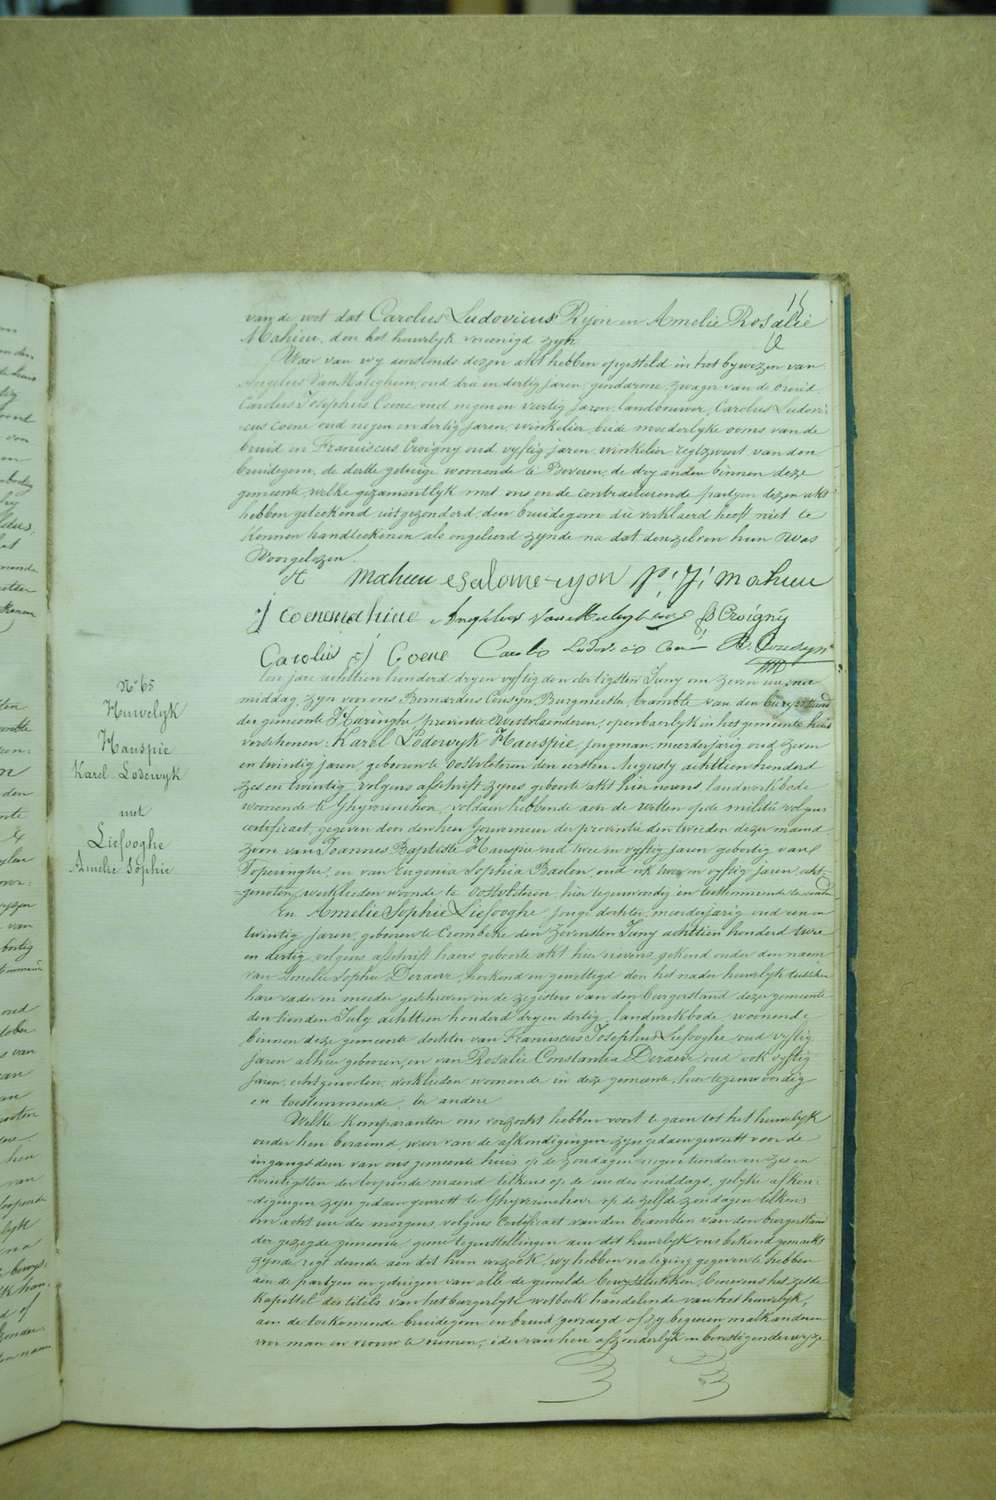 15
van de wet dat Carolus Ludovicus Ryon en Amelie Rosalie
Mahieu, don het huwelyk vereenigd zyn
Waer van wy aenstonds dezen akt hebben opgesteld in het bywezen van
Angelus Van Maeleghem, oud drie en dertig jaren, gendarme, zwager van de bruid
Carolus Josephus Coene oud negen en veertig jaren, landbouwer, Carolus Ludovi-
cus Coene oud negen en dertig jaren, winkelier, beide moederlyke ooms van de
bruid en Franciscus Croigny oud vyftig jaren, winkelier regtzweer van den
bruidegom, de derde getuige woonende te Beveren, de dry andere binnen deze
gemeente, welke gezamentlyk met ons en de contracteerende partyen dezen akt
hebben geteekend uitgezonderd den bruidegom die verklaerd heeft niet te
konnen handteekenen als ongeleerd zynde na dat denzelven hun was
Voorgelezen
A Mahieu esalome ryon p: j: mahieu
j coene mahieu Angelus Van Maeleghem F Croigny
Carolus j Coene Carolo Ludovico Coene B. Cousyn
N° 65
Huwelyk
Hauspie
Karel Lodewyk
met
Liefooghe
Amelie Sophie
Ten jare achttien honderd dry en vyftig den dertigsten Juny om zeven ure
middag, zyn voor ons Bernardus Cousyn, Burgmeester, beambte van den burgerstand
der gemeente Haringhe provincie westvlaenderen, openbaerlyk in het gemeente huis
verschenen: Karel Lodewyk Hauspie, jongman, meerderjarig oud zeven
en twintig jaren, geboren te Oostvleteren den eersten Augusty achttien honderd
zes en twintig, volgens afschrift zyns geboorte akt hier nevens, landwerkbode
woonende te Ghyverinchove, voldaen hebbende aen de wetten op de militie volgens
certificaet, gegeven door den heer Gouverneur der provintie den tweeden dezer maend
zoon van Joannes Baptiste Hauspie oud twee en vyftig jaren geboortig van
Poperinghe, en van Eugenia Sophia Baelen, oud ook twee en vyftig jaren, echt-
genoten, werklieden woonende te Oostvleteren, hier tegenwoordig en toestemmende te eender
En Amelie Sophie Liefooghe, jonge dochter, meerderjarig oud een en
twintig jaren, geboren te Crombeke den zevensten Juny achttien honderd twee
en dertig, volgens afschrift haers geboorte akt hier nevens, gekend onder den naem
van Amelie Sophie Deraeve, herkend en gewettigd don het nader huwelyk tusschen
hare vader en moeder geschreven in de registers van den burgerstand dezer gemeente
den tienden July achttien honderd dry en dertig, landwerkbode woonende
binnen deze gemeente dochter van Franciscus Josephus Liefooghe oud vyftig
jaren alhier geboren, en van Rosalie Constantia Deraeve oud ook vyftig
jaren, echtgenoten, werklieden woonende in deze gemeente, hier tegenwoordig
en toestemmende, ter andere
Welke komparanten ons verzocht hebben voort te gaen tot het huwelyk
onder hen beraemd, waer van de afkondigingen zyn gedaen geweest voor de
ingangsdeur van ons gemeente huis op de zondagen negentienden en zes en
twintigsten der loopende maend telkens op de ure des middags, gelyke afkon-
digingen zyn gedaen geweest te Ghyverinchove op de zelfde zondagen telkens
om acht ure des morgens, volgens certificaet van den beambten van den burgerstand
der gezegde gemeente, geene tegenstellingen aen dit huwelyk ons bekend gemaekt
zynde, regt doende aen dit hun verzoek, wy hebben na lezing gegeven te hebben
aen de partyen en getuigen van alle de gemelde bewysstukken, benevens het zesde
kapittel des titels van het burgerlyke wetboek handelende van het huwelyk,
aen de toekomende bruidegom en bruid gevraegd of zy begeeren malkanderen
voor man en vrouw te nemen; ider van hen afzonderlyk en bevestigender wyze